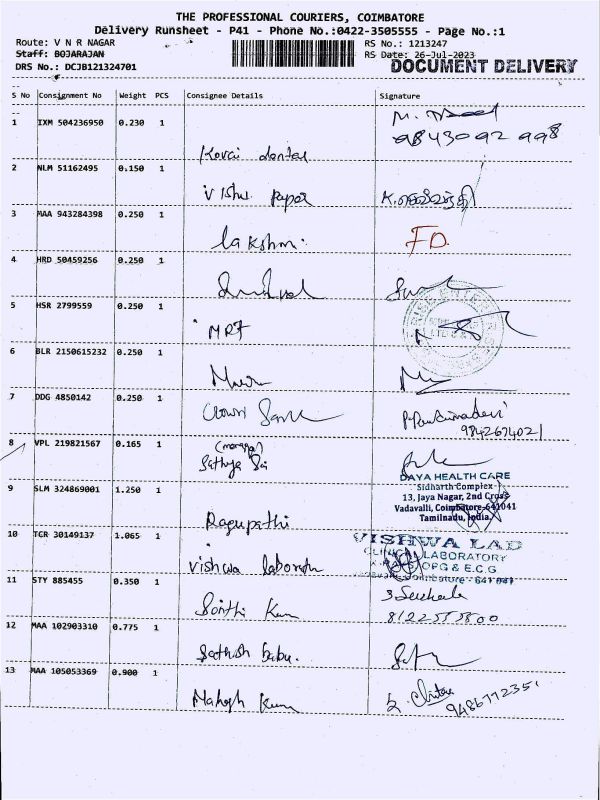 THE PROFESSIONAL COURIERS, COIMBATORE
Delivery Runsheet - P41 - Phone No.:0422-3505555 - Page No.:1
Route: V N R NAGAR RS No.: 1213247
Staff: BOJARAJAN RS Date: 26-Jul-2023
DRS No.: DCJB121324701 DOCUMENT DELIVERY
S No Consignment No Weight PCS Consignee Details Signature
1 IXM 504236950 0.230 1
9843092998
Kovai dental
2 NLM 51162495 0.150 1
Vishu Paper
3 MAA 943284398 0.250 1
Lakshmi. FD.
4 HRD 50459256 0.250 1
RISE ENTERPRISES
5 HSR 2799559 0.250 1
MRF
6 BLR 2150615232 0.250 1
7 DDG 4850142 0.250 1
9842674021
8 VPL 219821567 0.165 1
Sathya Sai
DAYA HEALTH CARE
Sidharth Complex
9 SLM 324869001 1.250 1 13, Jaya Nagar, 2nd Cross
Vadavalli, Coimbatore-641041
Tamilnadu, India.
Ragupathi
10 TCR 30149137 1.065 1 VISHWA LAB
CLINICAL LABORATORY
Vishwa laboratory OPG & E.C.G
Coimbatore - 641 041
11 STY 885455 0.350 1
Santhi Kum
12 MAA 102903310 0.775 1
Sathish babu.
13 MAA 105053369 0.900 1
Mahesh Kum